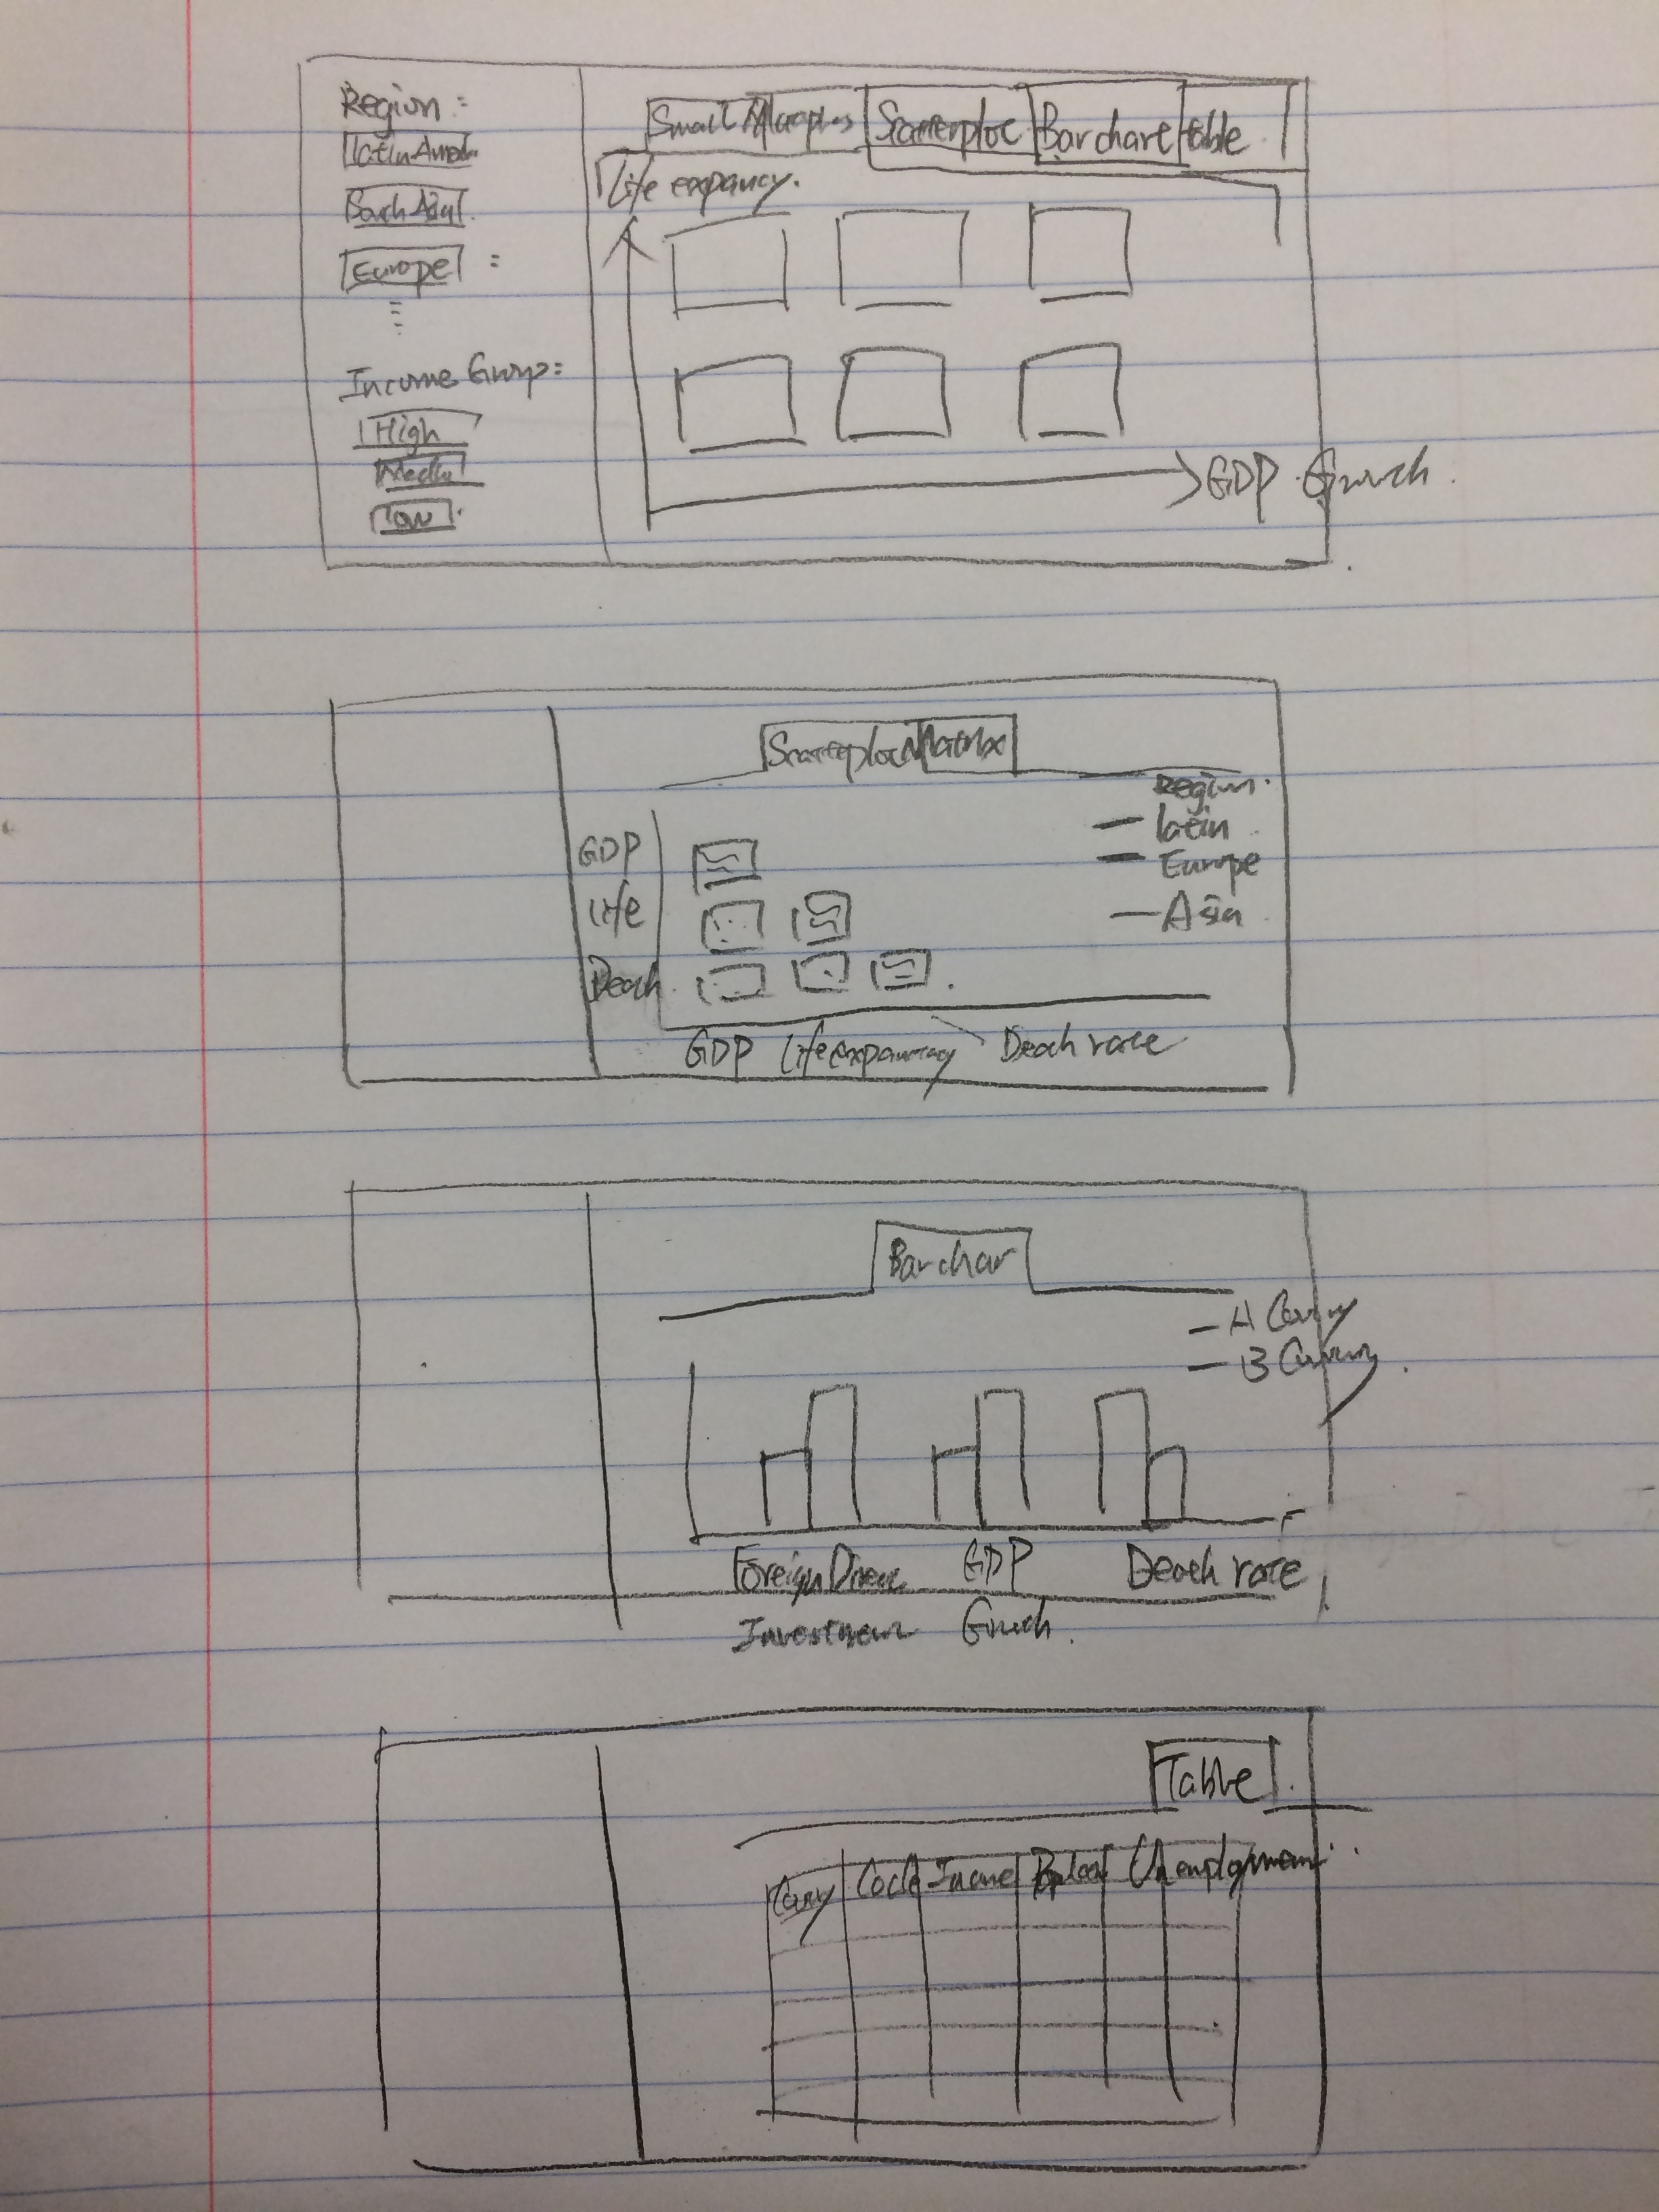 Region :
Latin Ameri
South Asia
Europe :
Income Group :
High
Medi
Low
Small Multiples Scatterplot Bar chart table
Life expancy.
GDP Growth.
Scatterplot Matrix
Region.
latin
Europe
Asia
GDP
Life
Death.
GDP Life expantancy Death rate
Bar char
A Country
B Country
Foreign Direct GDP Death rate
Investment Growth.
Table
Country Code Income Unemployment